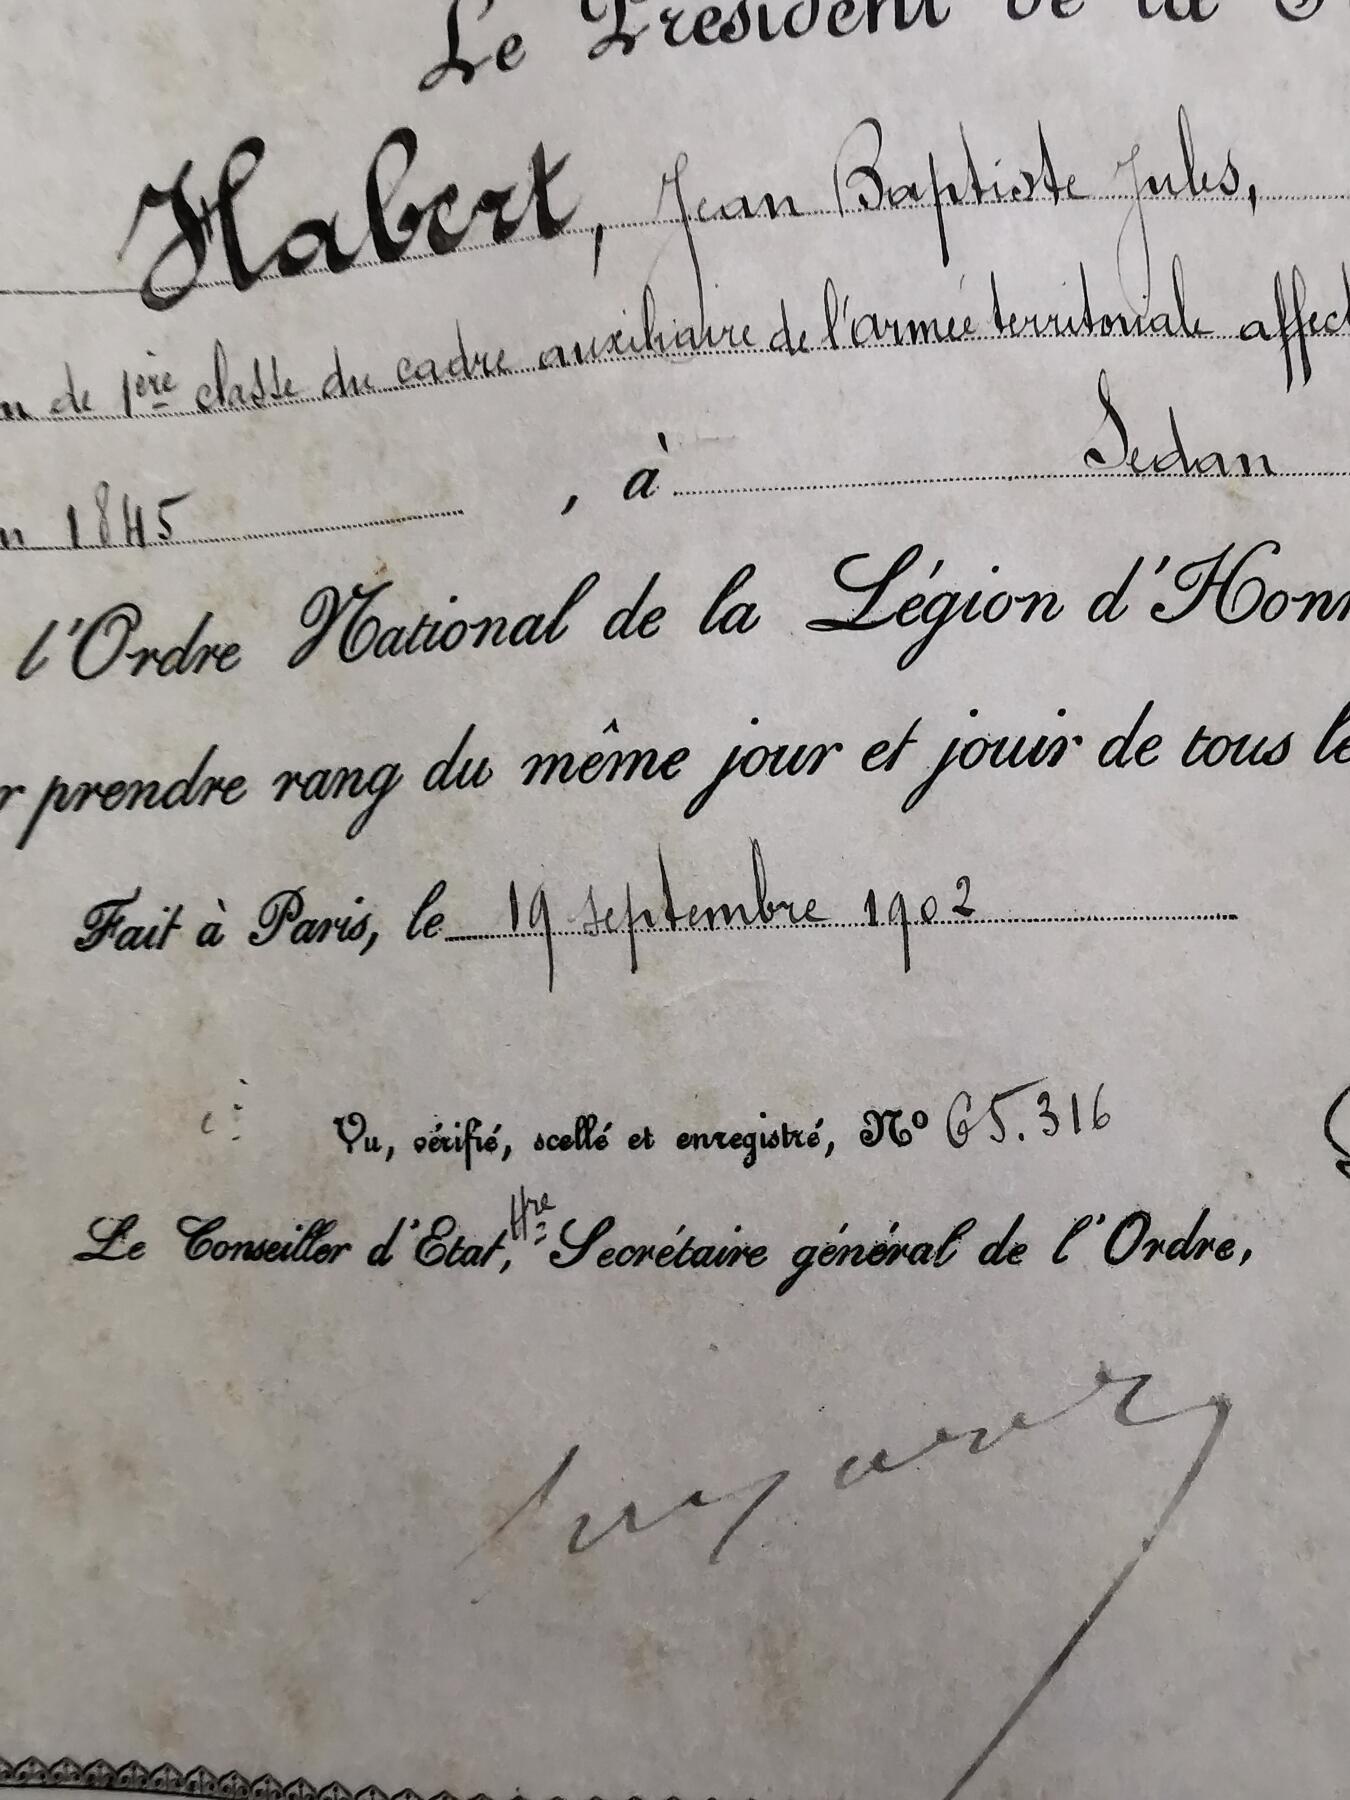 Le Président de la
Habert, Jean Baptiste Jules,
de 1ère classe du cadre auxiliaire de l'armée territoriale affect
1845 , à Sedan
l'Ordre National de la Légion d'Honn
r prendre rang du même jour et jouir de tous le
Fait à Paris, le 19 septembre 1902
Vu, vérifié, scellé et enregistré, No 65.316
Le Conseiller d'Etat, Hre Secrétaire général de l'Ordre,